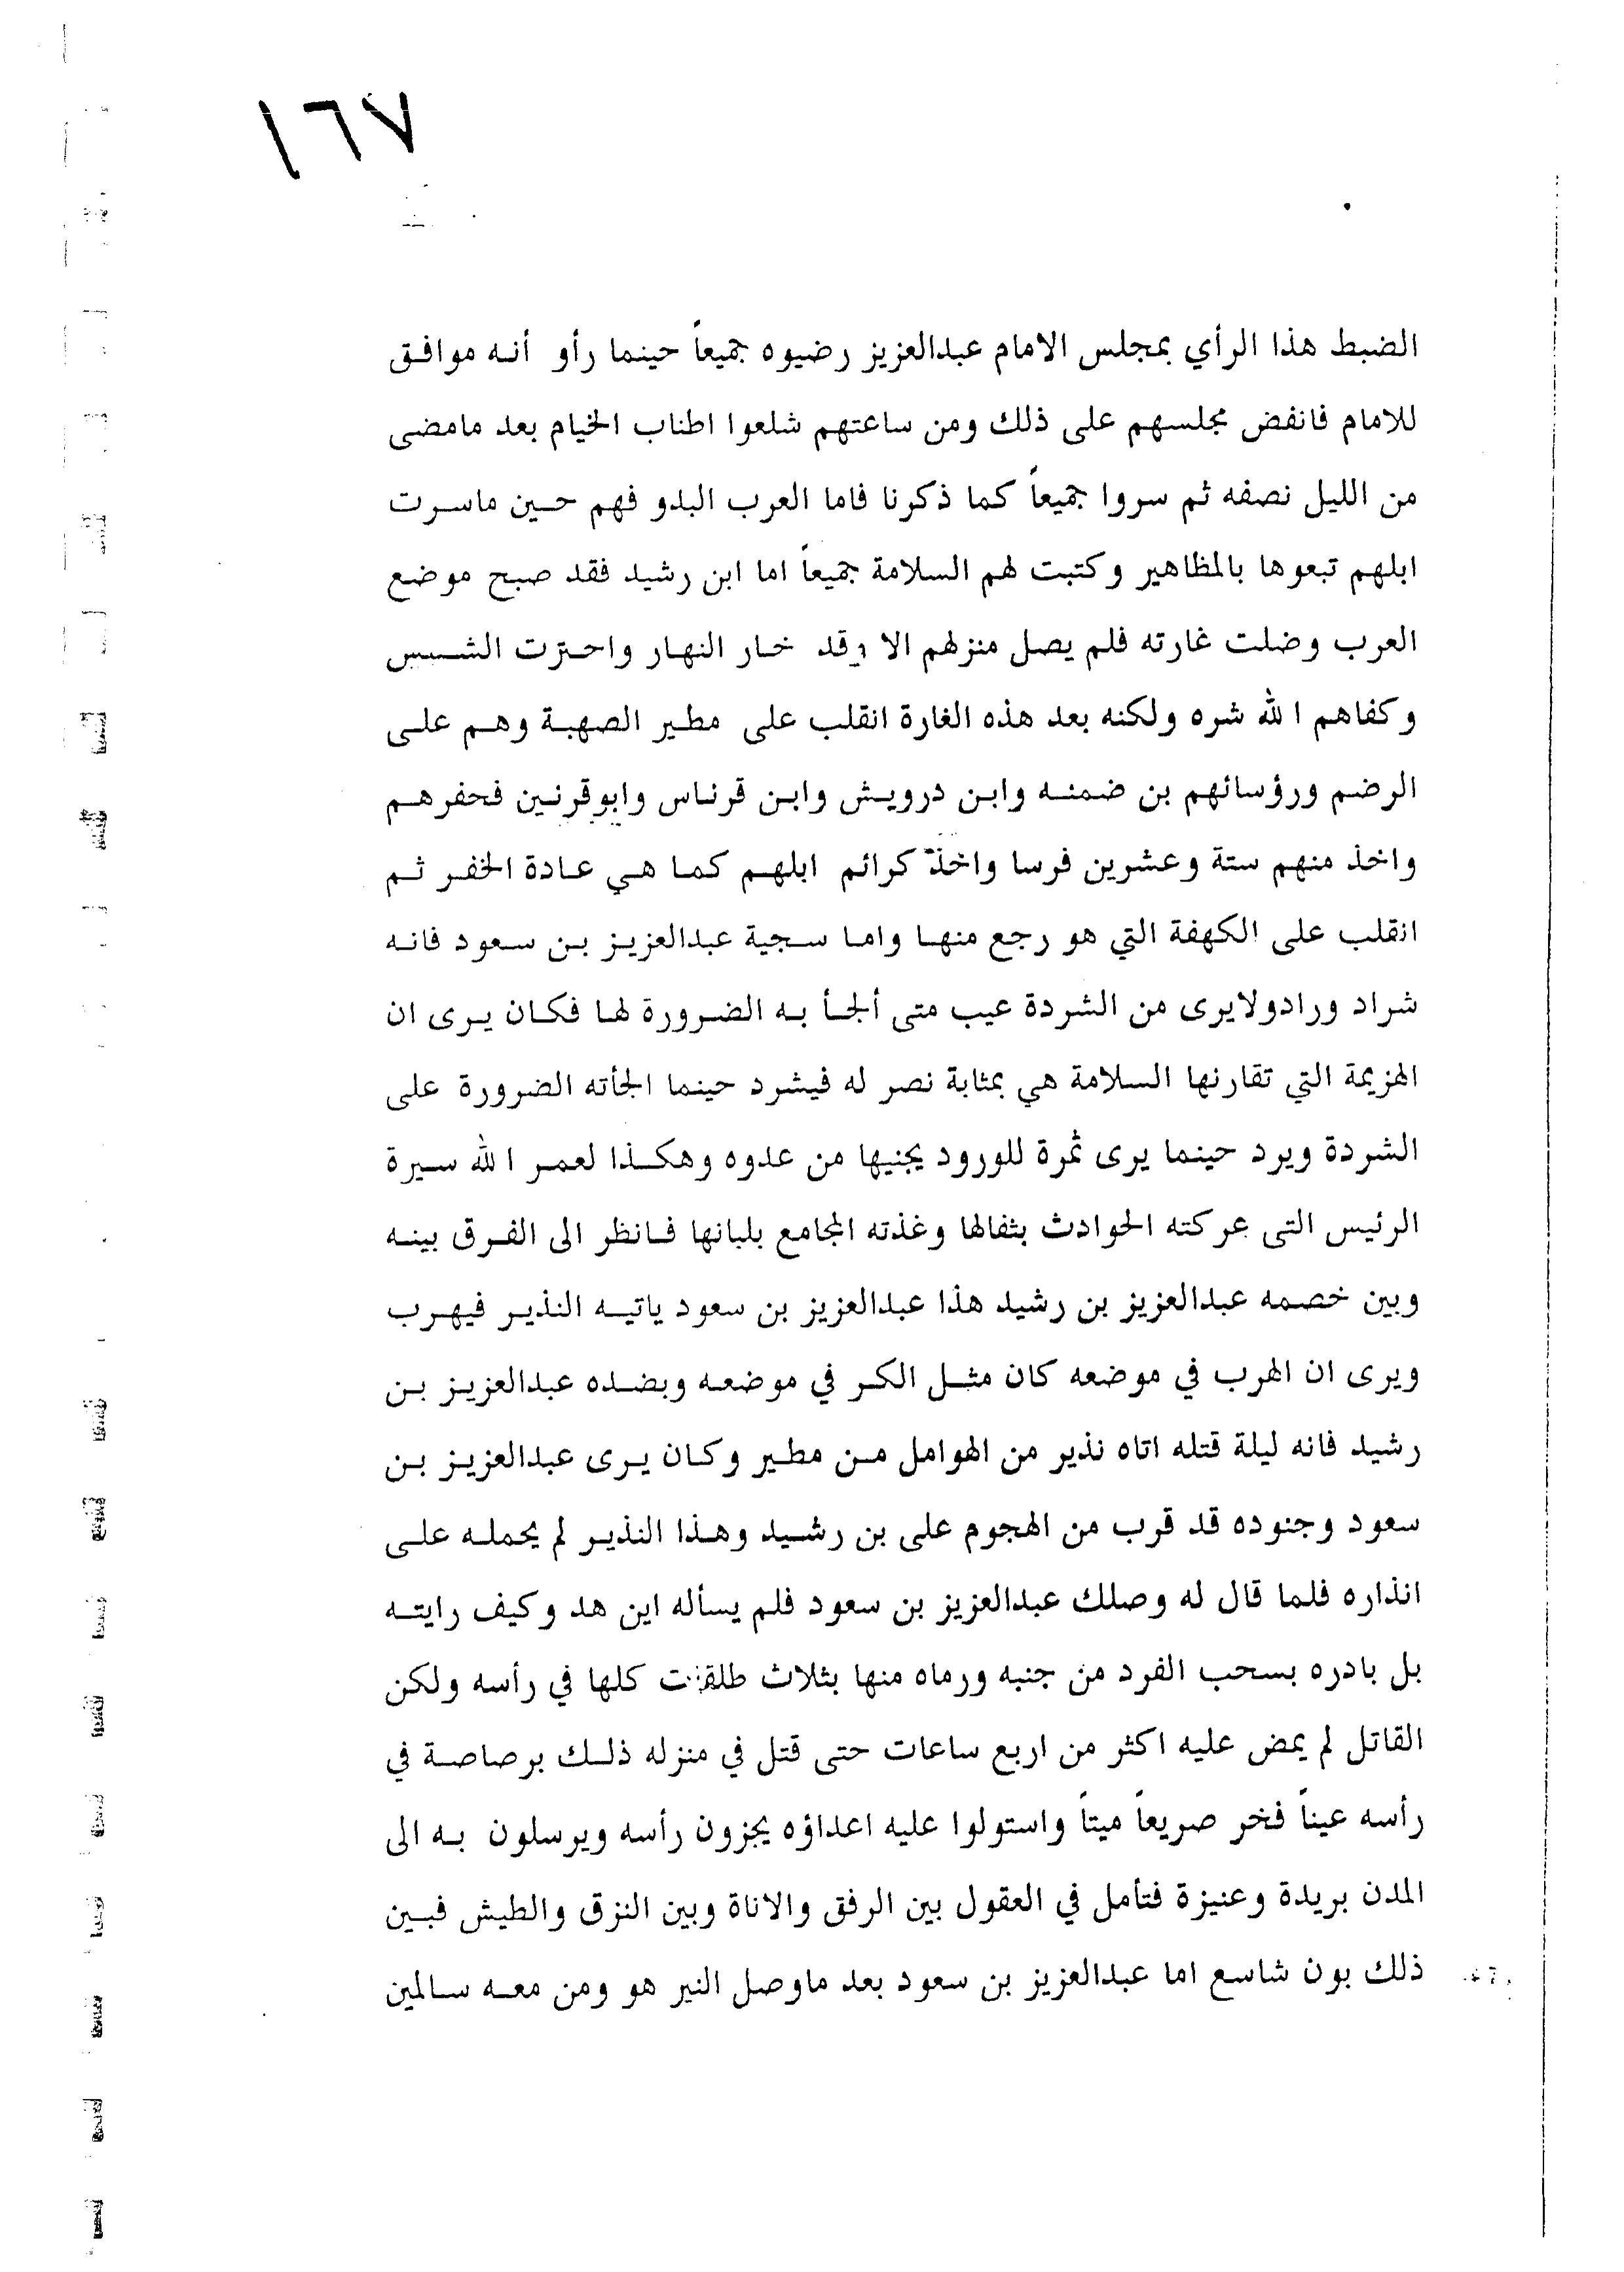 ١٦٧
الضبط هذا الرأي بمجلس الامام عبدالعزيز رضيوه جميعاً حينما رأو أنه موافق
للامام فانفض مجلسهم على ذلك ومن ساعتهم شلعوا اطناب الخيام بعد مامضى
من الليل نصفه ثم سروا جميعاً كما ذكرنا فاما العرب البدو فهم حين ماسرت
ابلهم تبعوها بالمظاهير وكتبت لهم السلامة جميعاً اما ابن رشيد فقد صبح موضع
العرب وضلت غارته فلم يصل منزلهم الا وقد خار النهار واحترت الشمس
وكفاهم الله شره ولكنه بعد هذه الغارة انقلب على مطير الصهبة وهم على
الرضم ورؤسائهم بن ضمنه وابن درويش وابن قرناس وابوقرنين فحفرهم
واخذ منهم ستة وعشرين فرسا واخذ كرائم ابلهم كما هي عادة الخفر ثم
انقلب على الكهفة التي هو رجع منها واما سجية عبدالعزيز بن سعود فانه
شراد ورادولايرى من الشردة عيب متى ألجأ به الضرورة لها فكان يرى ان
الهزيمة التي تقارنها السلامة هي بمثابة نصر له فيشرد حينما الجأته الضرورة على
الشردة ويرد حينما يرى ثمرة للورود يجنيها من عدوه وهكذا لعمر الله سيرة
الرئيس التى عركته الحوادث بثفالها وغذته المجامع بلبانها فانظر الى الفرق بينه
وبين خصمه عبدالعزيز بن رشيد هذا عبدالعزيز بن سعود ياتيه النذير فيهرب
ويرى ان الهرب في موضعه كان مثل الكر في موضعه وبضده عبدالعزيز بن
رشيد فانه ليلة قتله اتاه نذير من الهوامل من مطير وكان يرى عبدالعزيز بن
سعود وجنوده قد قرب من الهجوم على بن رشيد وهذا النذير لم يحمله على
انذاره فلما قال له وصلك عبدالعزيز بن سعود فلم يسأله اين هد وكيف رايته
بل بادره بسحب الفرد من جنبه ورماه منها بثلاث طلقات كلها في رأسه ولكن
القاتل لم يمض عليه اكثر من اربع ساعات حتى قتل في منزله ذلك برصاصة في
رأسه عيناً فخر صريعاً ميتاً واستولوا عليه اعداؤه يجزون رأسه ويرسلون به الى
المدن بريدة وعنيزة فتأمل في العقول بين الرفق والاناة وبين النزق والطيش فبين
ذلك بون شاسع اما عبدالعزيز بن سعود بعد ماوصل النير هو ومن معه سالمين